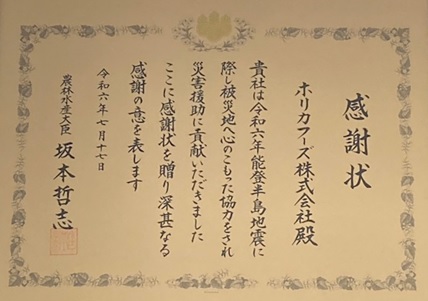 感謝状
ホリカフーズ株式会社殿
貴社は令和六年能登半島地震に
際し被災地へ心のこもった協力をされ
災害援助に貢献いただきました
ここに感謝状を贈り深甚なる
感謝の意を表します
令和六年七月十七日
農林水産大臣 坂本哲志